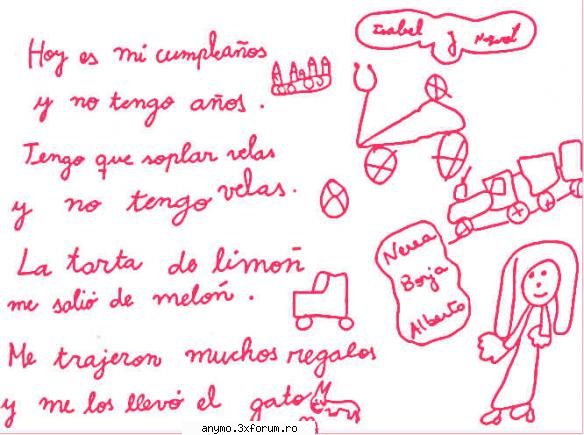 Isabel
y
Hoy es mi cumpleaños
y no tengo años.
Tengo que soplar velas
y no tengo velas.
Nerea
Borja
Alberto
La tarta de limoñ
me salió de meloñ.
Me trajeron muchos regalos
y me los llevó el gato
anymo.3xforum.ro